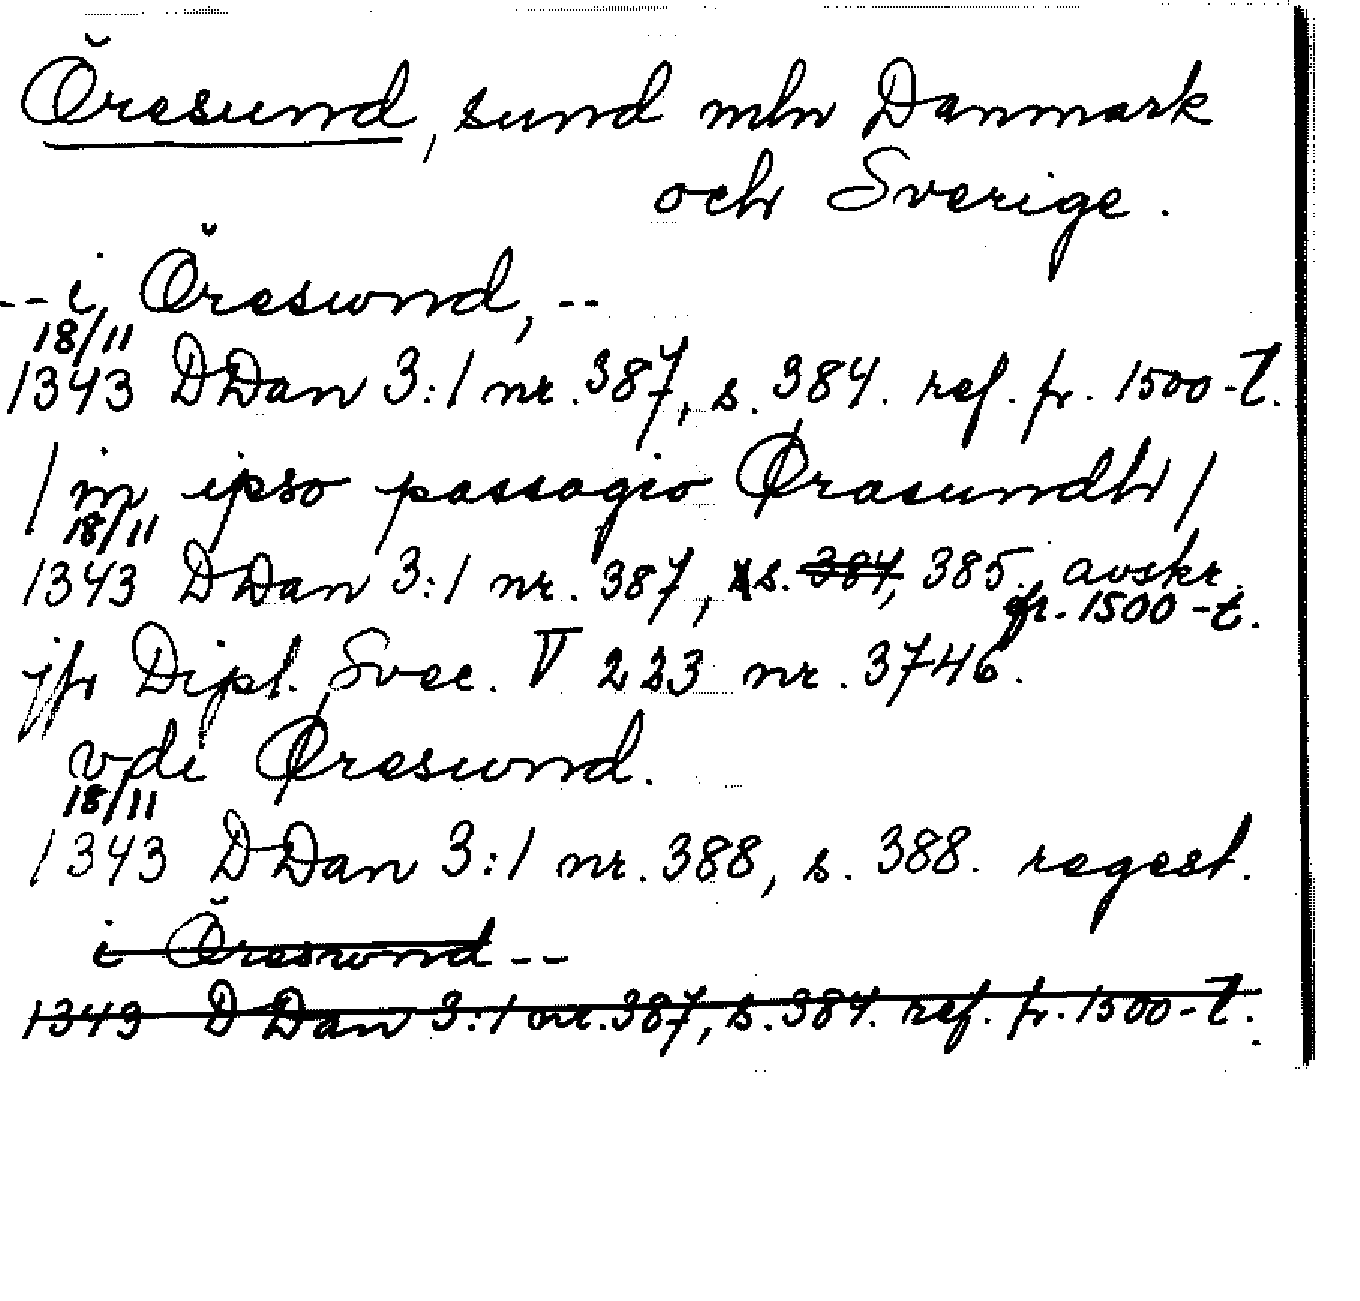 Öresund, sund mln Danmark
och Sverige.
-- i Öreswnd, --
18/11
1343 DDan 3:1 nr. 387, s. 384. ref. fr. 1500-t.
/ in ipso passagio Ørasundh /
18/11
1343 DDan 3:1 nr. 387, s. 384, 385. avskr.
fr. 1500-t.
jfr Dipl. Svec. V 223 nr. 3746.
vdi Øreswnd.
18/11
1343 DDan 3:1 nr. 388, s. 388. regest.
i Öreswnd --
1343 DDan 3:1 nr. 387, s. 384. ref. fr. 1500-t.